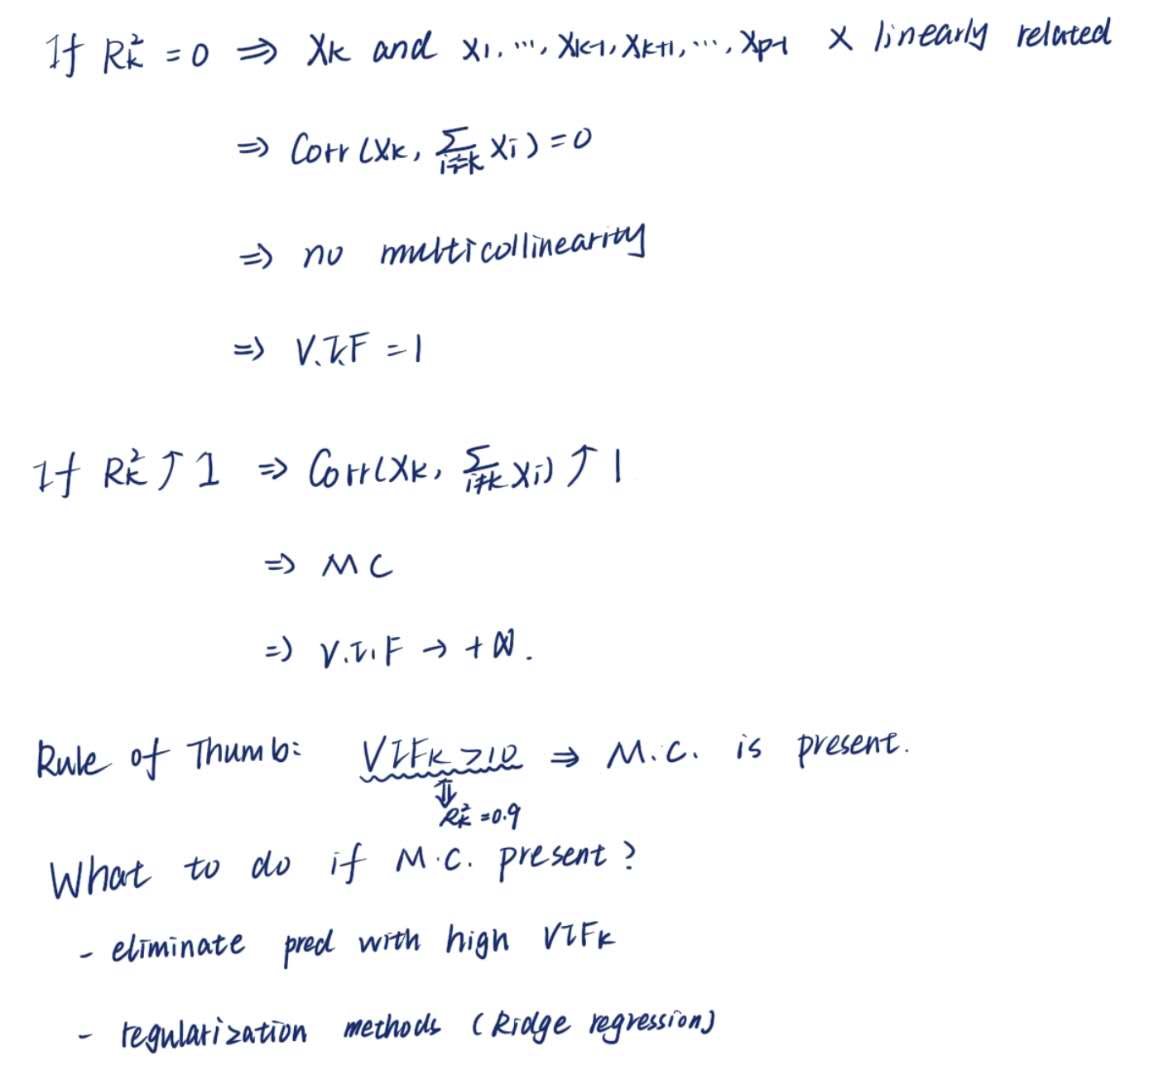 If Rk² = 0 ⇒ Xk and X1, ..., Xk-1, Xk+1, ..., Xp-1 × linearly related
⇒ Corr (Xk, Σi≠k Xi) = 0
⇒ no multicollinearity
⇒ V.I.F = 1
If Rk² ↑ 1 ⇒ Corr(Xk, Σi≠k Xi) ↑ 1
⇒ MC
⇒ V.I.F → +∞.
Rule of Thumb: VIFk >10 ⇒ M.C. is present.
⇕
Rk² =0.9
What to do if M.C. present?
- eliminate pred with high VIFk
- regularization methods (Ridge regression)